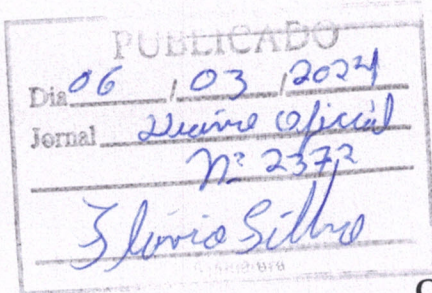 PUBLICADO
Dia 06 / 03 / 2024
Jornal Diário Oficial
Nº 2372
Flávio Silva